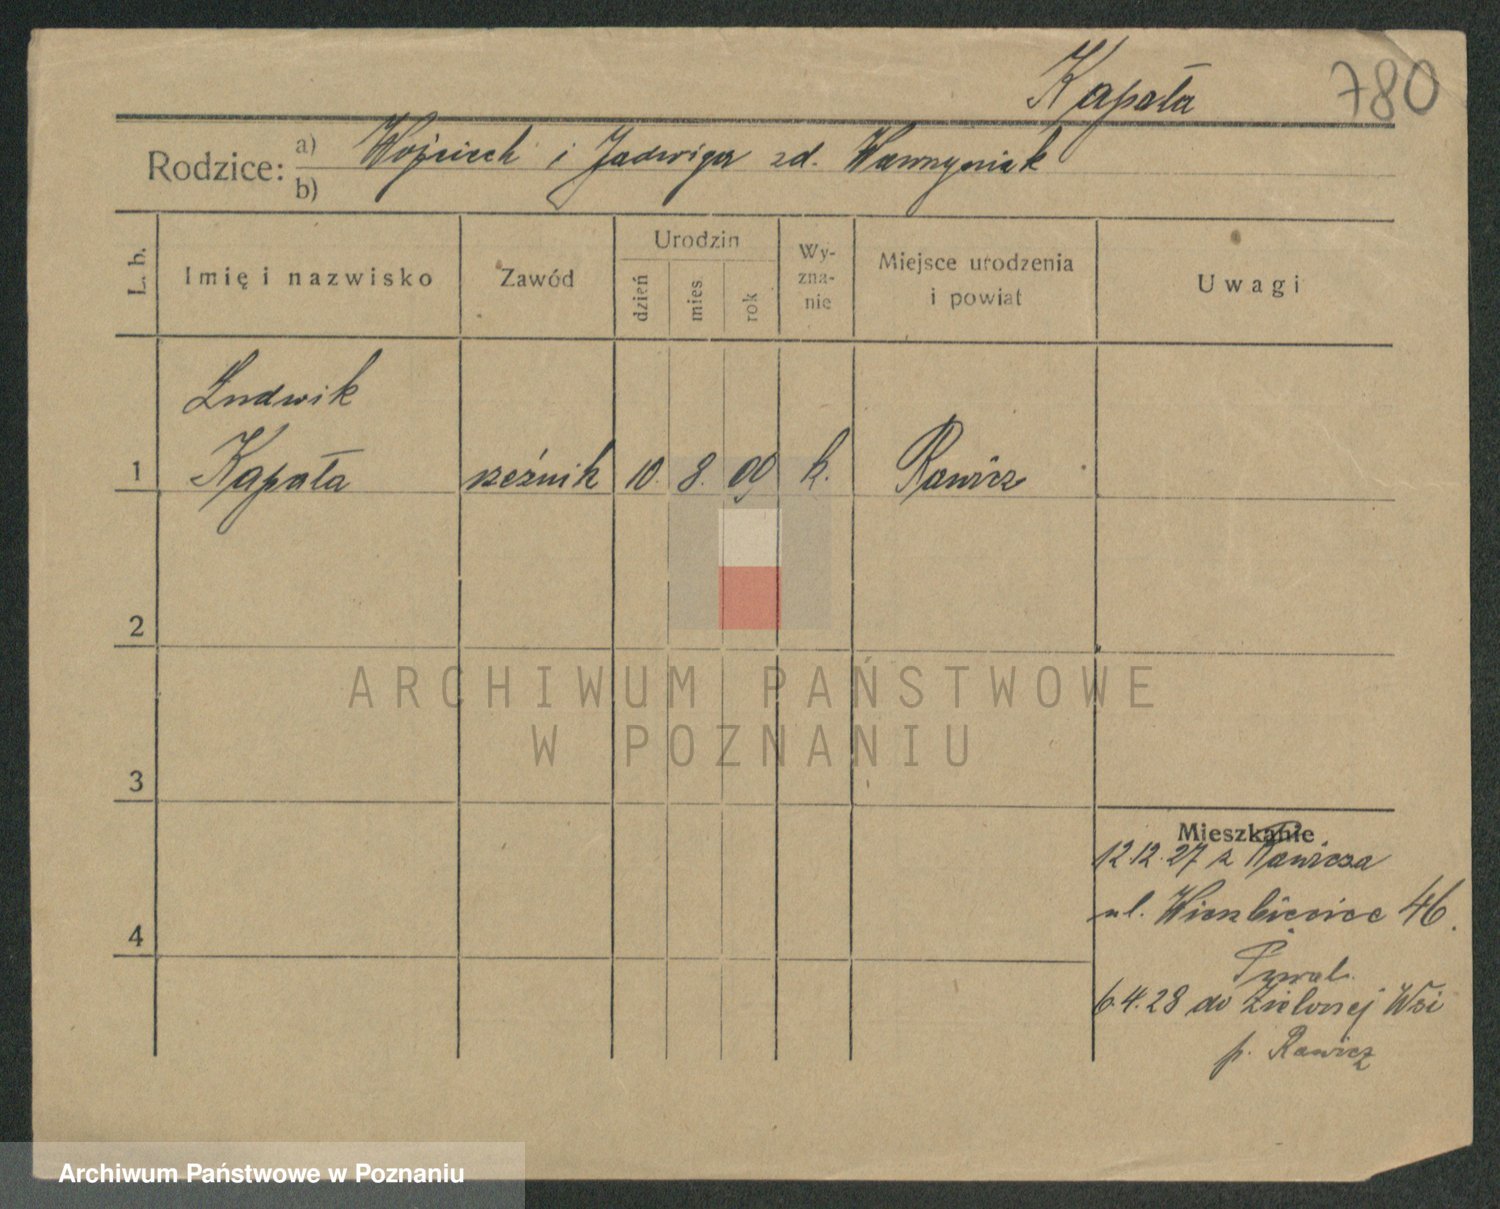 Kapała 780
Rodzice: a) Wojciech i Jadwiga zd. Wawrzyniak
b)
L. b. Imię i nazwisko Zawód Urodzin dzień mies. rok Wy-zna-nie Miejsce urodzenia i powiat Uwagi
Ludwik
1 Kapała rzeźnik 10. 8. 00 k. Rawicz
2
ARCHIWUM PAŃSTWOWE
W POZNANIU
3
Mieszkanie
12.12.27 z Rawicza
ul. Wierzbięcice 46.
4
6.4.28 do Zielonej Wsi
p. Rawicz
Archiwum Państwowe w Poznaniu